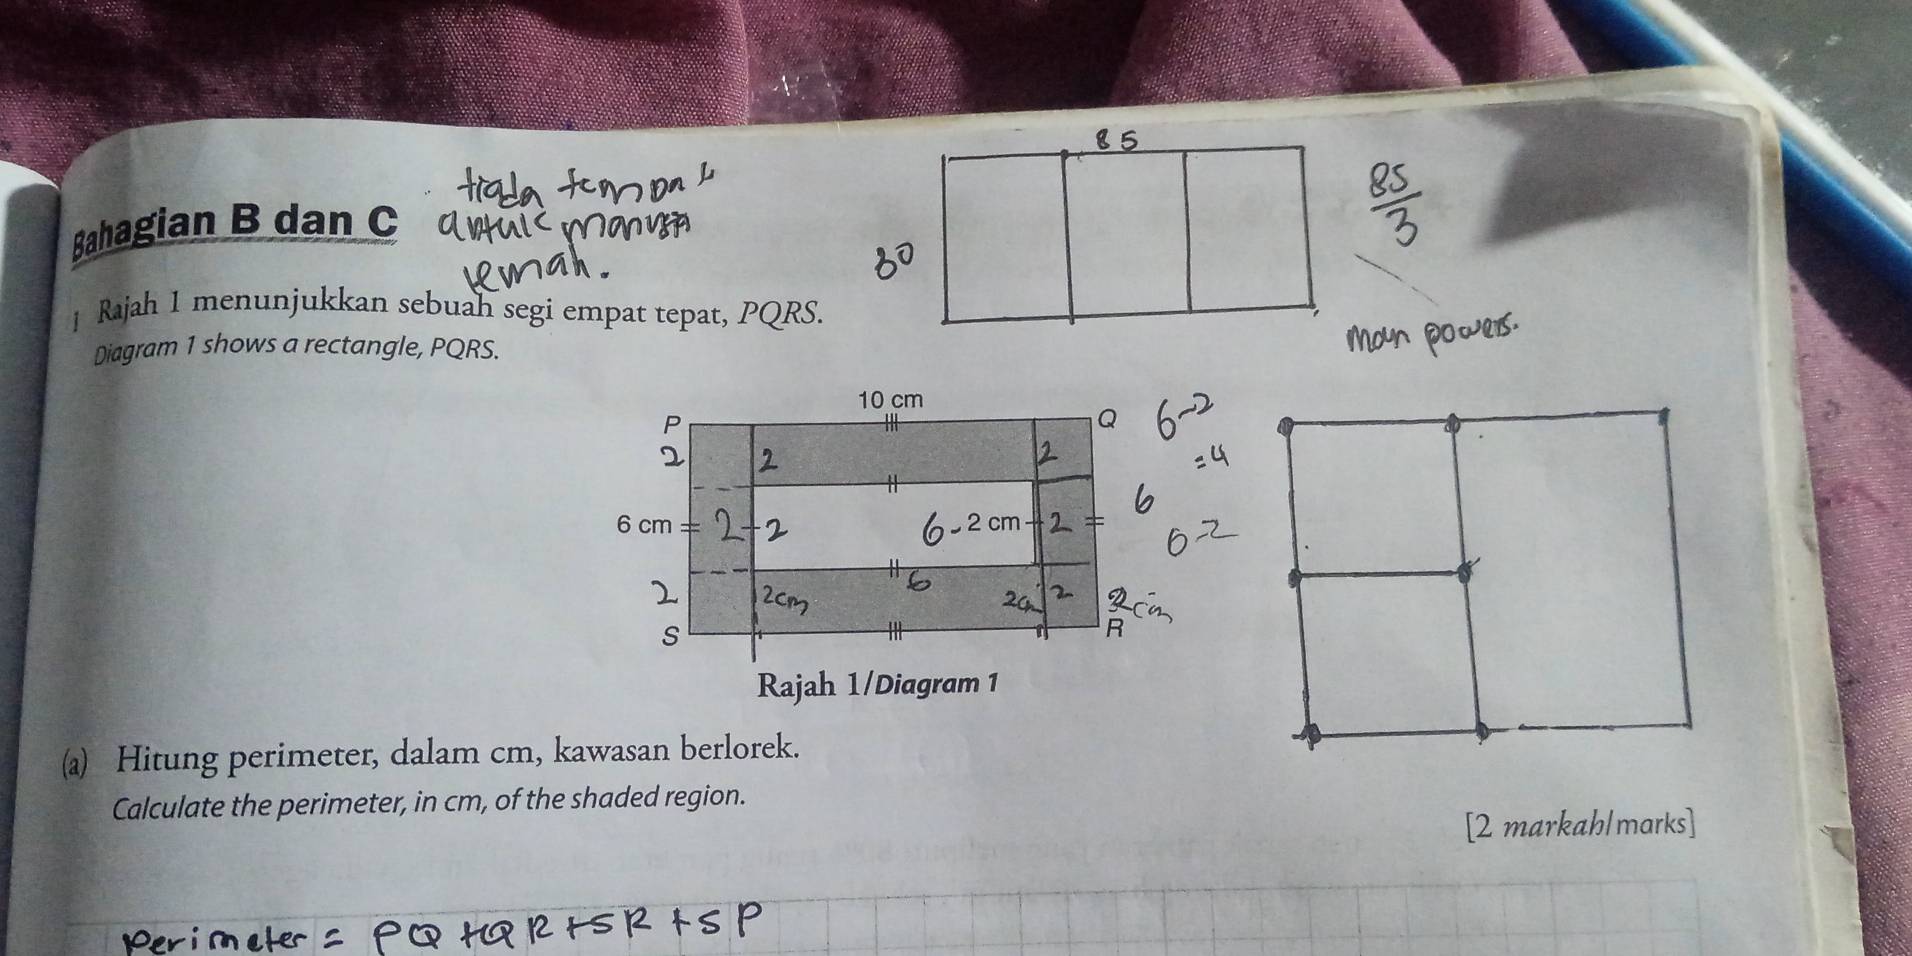 85
tiada tempat
Bahagian B dan C
untuk manusia
lemah.
80
85
3
man powers.
1 Rajah 1 menunjukkan sebuah segi empat tepat, PQRS.
Diagram 1 shows a rectangle, PQRS.
10 cm
P
Q
6-2
=4
2
2
2
6 cm
2
2
6-
2 cm
2
6
6-2
6
2
2cm
2cm
2
2cm
S
R
Rajah 1/Diagram 1
(a) Hitung perimeter, dalam cm, kawasan berlorek.
Calculate the perimeter, in cm, of the shaded region.
[2 markah/marks]
perimeter = PQ+QR+SR+SP